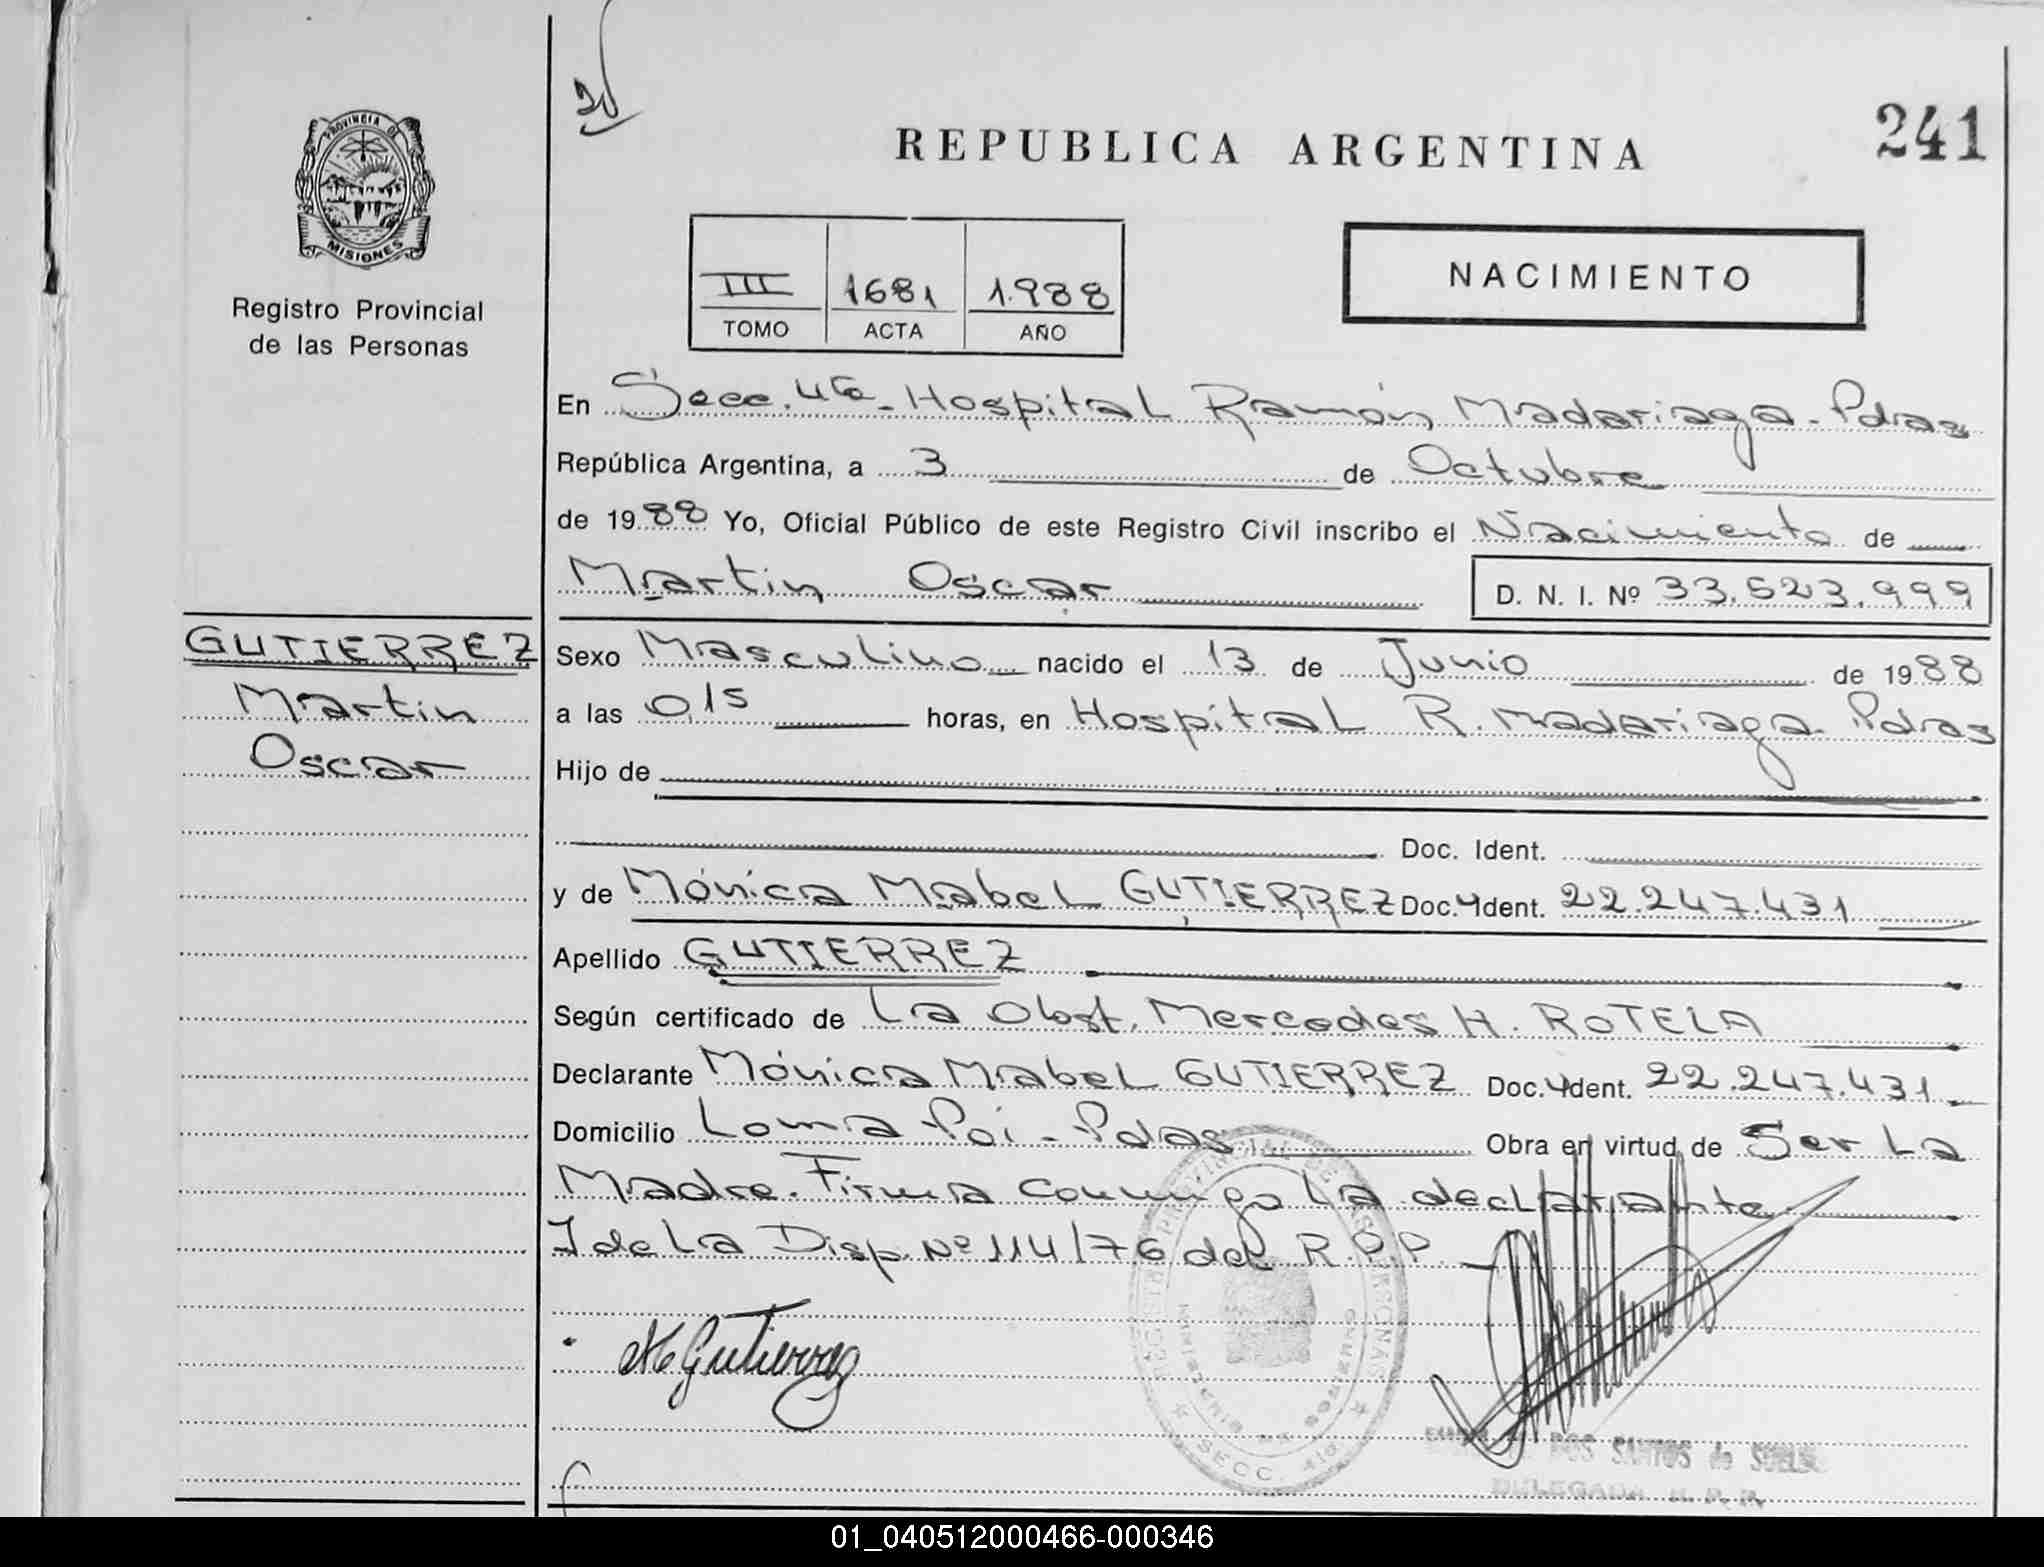 20
REPUBLICA ARGENTINA
241
PROVINCIA DE
MISIONES
Registro Provincial
de las Personas
III 1681 1.988
TOMO ACTA AÑO
NACIMIENTO
En Secc. 4ta - Hospital Ramón Madariaga - Pdas
República Argentina, a 3 de Octubre
de 1988 Yo, Oficial Público de este Registro Civil inscribo el Nacimiento de
Martin Oscar
D. N. I. Nº 33.523.999
GUTIERREZ
Martin
Oscar
Sexo Masculino nacido el 13 de Junio de 1988
a las 0,15 horas, en Hospital R. Madariaga - Pdas
Hijo de
Doc. Ident.
y de Mónica Mabel GUTIERREZ Doc. Ident. 22.247.431
Apellido GUTIERREZ
Según certificado de La Obst. Mercedes H. ROTELA
Declarante Mónica Mabel GUTIERREZ Doc. Ident. 22.247.431
Domicilio Loma Poi - Pdas Obra en virtud de Ser La
Madre. Firma conmigo la declarante
I de La Disp. Nº 114/76 del R.P.P.
M Gutierrez
REGISTRO PROVINCIAL DE LAS PERSONAS
SECC. 4ta
DOS SANTOS de
DELEGADA R. P. P.
01_040512000466-000346